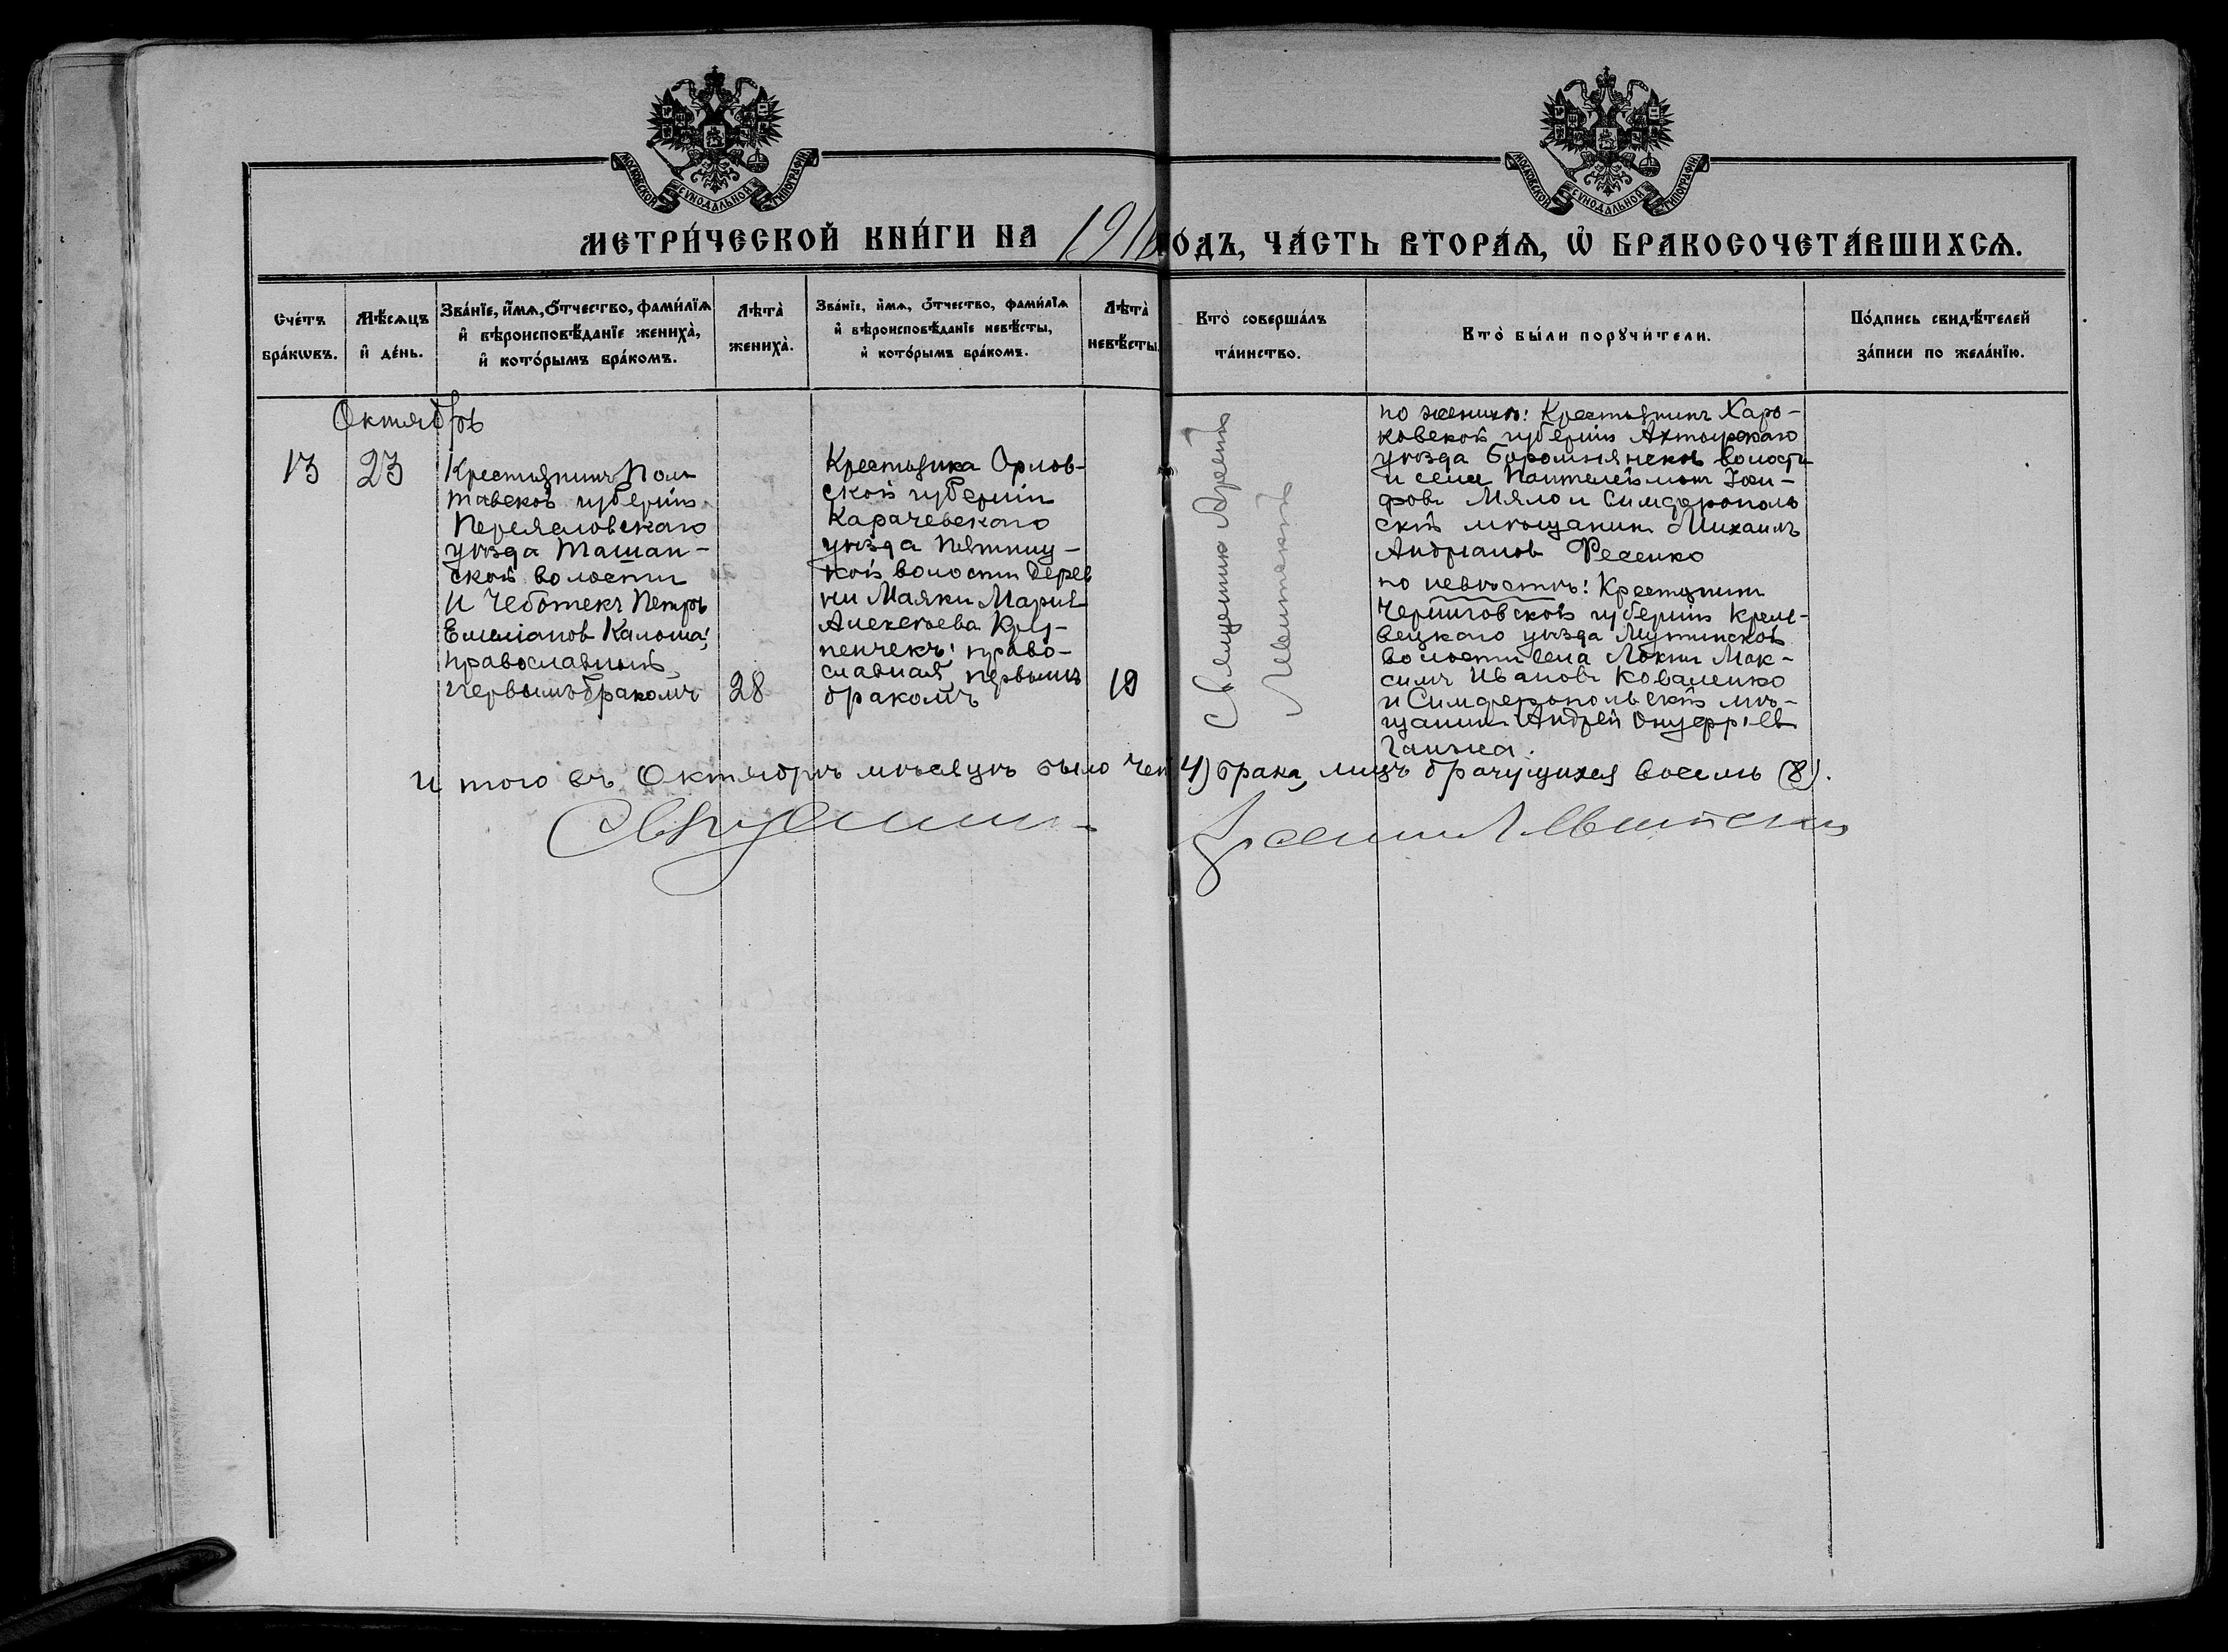 МОСКОВСКОЙ СѴНОДАЛЬНОЙ ТИПОГРАФІИ
МОСКОВСКОЙ СѴНОДАЛЬНОЙ ТИПОГРАФІИ
МЕТРИ́ЧЕСКОЙ КНИ́ГИ НА 191 ГО́ДЪ, ЧА́СТЬ ВТОРА́Ѧ, Ѽ БРАКОСОЧЕТА́ВШИХСѦ.
Сче́тъ бра́кѡвъ.
Мѣ́сѧцъ и҆ де́нь.
Зва́нїе, и҆́мѧ, ѻ҆́тчество, фами́лїѧ
и҆ вѣроисповѣ́данїе жениха̀,
и҆ кото́рымъ бра́комъ.
Лѣта̀ жениха̀.
Зва́нїе, и҆́мѧ, ѻ҆́тчество, фами́лїѧ
и҆ вѣроисповѣ́данїе невѣ́сты,
и҆ кото́рымъ бра́комъ.
Лѣта̀ невѣ́сты.
Кто̀ соверша́лъ
та́инство.
Кто̀ бы́ли порꙋчи́тели.
По́дпись свидѣ́телей
за́писи по жела́нїю.
Октябрь
13
23
Крестьянинъ Пол
тавской губерніи
Переяславскаго
уѣзда Ташан-
ской волости
и Чеботекъ Петръ
Емеліановъ Калоша;
православный,
первымъ бракомъ
28
Крестьянка Орлов-
ской губерніи
Карачевскаго
уѣзда Пятниц-
кой волости дерев
ни Маяки Марія
Алексѣева
право-
славная, первымъ
бракомъ
19
Священникъ
Левитскій
по женихѣ: Крестьянинъ Харь-
ковской губерніи Ахтырскаго
уѣзда Боромлянской волости
и села Пантелеймонъ
Мяло и Симферополь
скій мѣщанинъ Михаилъ
Андріановъ Фесенко
по невѣстѣ: Крестьянинъ
Черниговской губерніи Кроле-
вецкаго уѣзда Мутинской
волости села Локни Мак-
симъ Ивановъ Коваленко
и Симферопольскій мѣ-
щанинъ Андрей Онуфріев
И того въ Октябрѣ мѣсяцѣ было чет 4) брака, лицъ брачущихся восемь (8).
Священникъ Левитскій